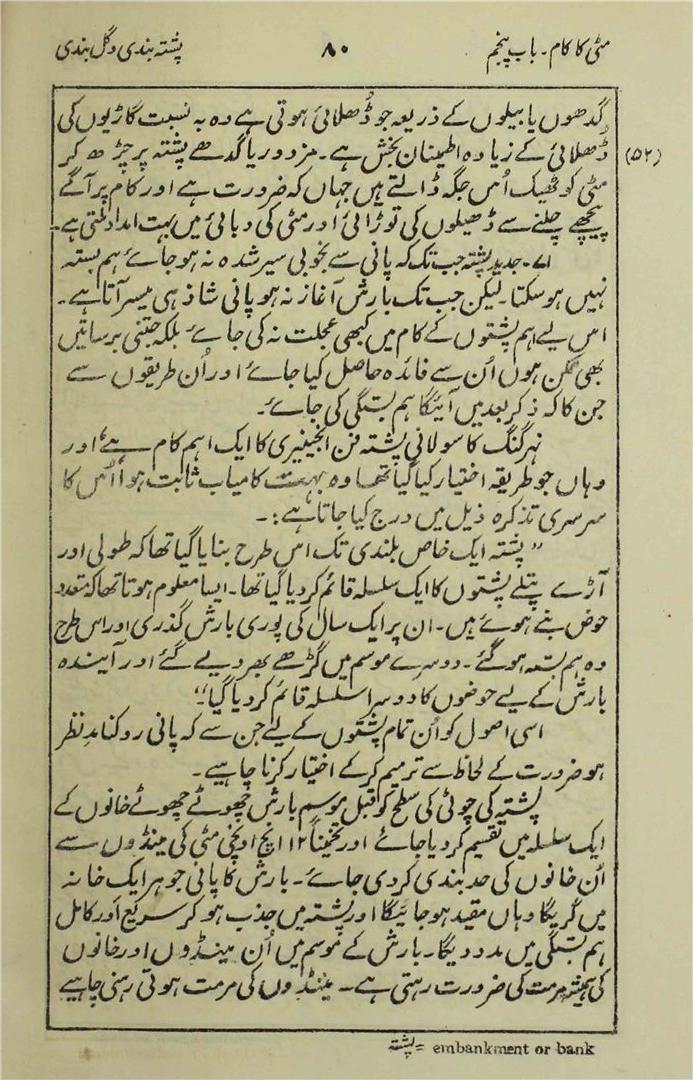 مٹی کا کام۔ باب پنجم ۸۰ پشتہ بندی و گل بندی
گدھوں یا بیلوں کے ذریعہ جو ڈُھلائی ہوتی ہے وہ بہ نسبت گاڑیوں کی
(۵۲) ڈُھلائی کے زیادہ اطمینان بخش ہے۔ مزدور یا گدھے پشتہ پر چڑھ کر
مٹی کو ٹھیک اُس جگہ ڈالتے ہیں جہاں کہ ضرورت ہے اور کام پر آگے
پیچھے چلنے سے ڈھیلوں کی توڑائی اور مٹی کی دبائی میں بہت امداد ملتی ہے۔
۷۱۔ جدید پشتہ جب تک کہ پانی سے بخوبی سیر شدہ نہ ہو جائے ہم بستہ
نہیں ہو سکتا۔ لیکن جب تک بارش آغاز نہ ہو پانی شاذ ہی میسر آتا ہے۔
اس لیے اہم پشتوں کے کام میں کبھی عجلت نہ کی جائے بلکہ جتنی برساتیں
بھی ممکن ہوں اُن سے فائدہ حاصل کیا جائے اور اُن طریقوں سے
جن کا کہ ذکر بعد میں آئیگا ہم بستگی کی جائے۔
نہر گنگ کا سولانی پشتہ فن انجینیری کا ایک اہم کام ہے، اور
وہاں جو طریقہ اختیار کیا گیا تھا وہ بہت کامیاب ثابت ہوا اُس کا
سرسری تذکرہ ذیل میں درج کیا جاتا ہے:۔
”پشتہ ایک خاص بلندی تک اس طرح بنایا گیا تھا کہ طولی اور
آڑے پتلے پشتوں کا ایک سلسلہ قائم کر دیا گیا تھا۔ ایسا معلوم ہوتا تھا کہ متعدد
حوض بنے ہوئے ہیں۔ ان پر ایک سال کی پوری بارش گذری اور اس طرح
وہ ہم بستہ ہو گئے۔ دوسرے موسم میں گڑھے بھر دیے گئے اور آیندہ
بارش کے لیے حوضوں کا دوسرا سلسلہ قائم کر دیا گیا“
اسی اصول کو اُن تمام پشتوں کے لیے جن سے کہ پانی روکنا مدِ نظر
ہو ضرورت کے لحاظ سے ترمیم کر کے اختیار کرنا چاہیے۔
پشتہ کی چوٹی کی سطح کو قبل موسم بارش چھوٹے چھوٹے خانوں کے
ایک سلسلہ میں تقسیم کر دیا جائے اور تخمیناً ۱۲ انچ اونچی مٹی کی مینڈوں سے
اُن خانوں کی حد بندی کر دی جائے۔ بارش کا پانی جو ہر ایک خانہ
میں گریگا وہاں مقید ہو جائیگا اور پشتہ میں جذب ہو کر سریع اور کامل
ہم بستگی میں مدد دیگا۔ بارش کے موسم میں اُن مینڈوں اور خانوں
کی ہمیشہ مرمت کی ضرورت رہتی ہے۔ مینڈوں کی مرمت ہوتی رہنی چاہیے
پشتہ = embankment or bank